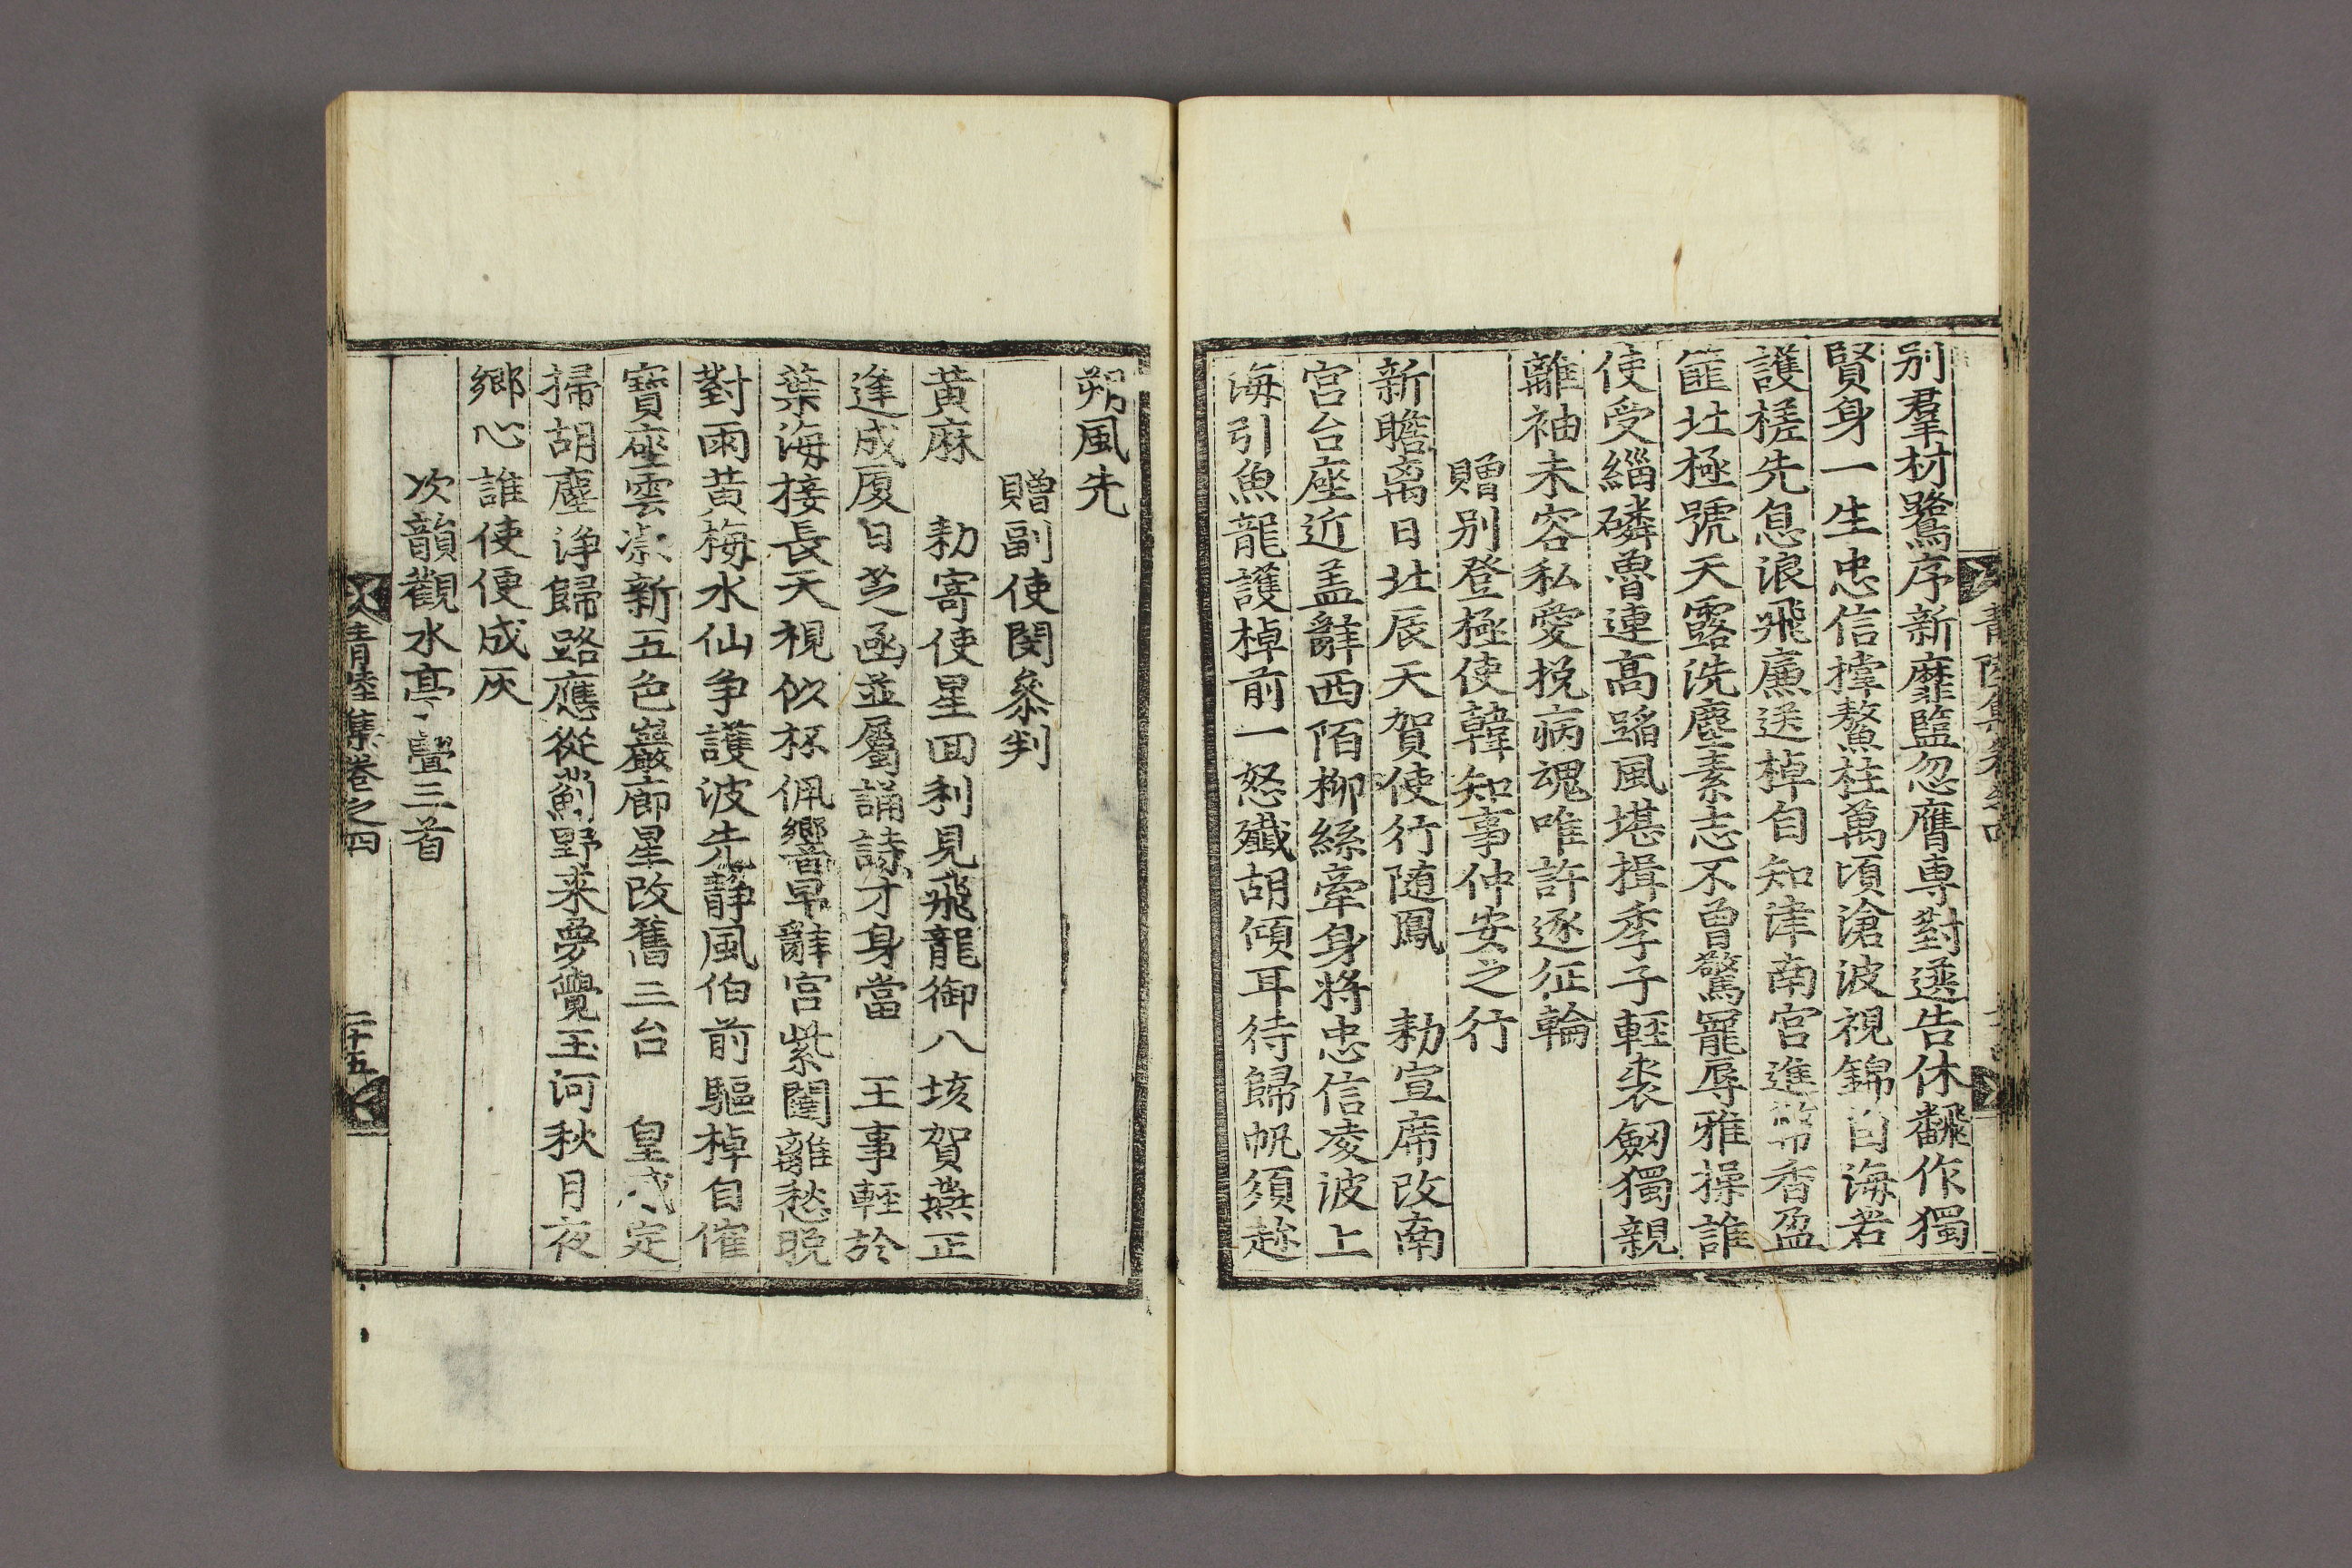 別羣材鷺序新靡盬忽膺專對選告休飜作獨
賢身一生忠信撑鰲柱萬頃滄波視錦自海若
護槎先息浪飛廉送棹自知津南宮進幣香盈
篚北極號天露洗塵素志不曾驚罷辱雅操誰
使受緇磷魯連高蹈風堪揖季子輕裘劒獨親
離袖未容私愛挽病魂唯許逐征輪
贈別登極使韓知事仲安之行
新瞻离日北辰天賀使行随鳳 勑宣席改南
宮台座近盖辭西陌柳絲牽身將忠信凌波上
海引魚龍護棹前一怒殲胡傾耳待歸帆須趁
朔風先
贈副使閔參判
黃麻 勑寄使星回利見飛龍御八垓賀燕正
逢成厦日芝函並屬誦詩才身當 王事輕於
葉海接長天視似杯佩響早辭宮紫闥離愁晚
對雨黃梅水仙爭護波先靜風伯前驅棹自催
寶座雲新五色巖廊星改舊三台 皇威定
掃胡塵淨歸路應從薊野来夢覺玉河秋月夜
鄕心誰使便成灰
次韻觀水亭疊三首
青陸集卷之四
二十五